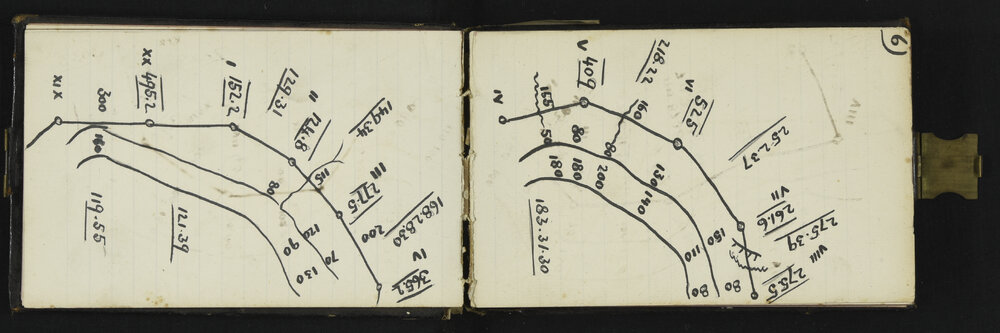 XIX
300
160
119.55
XX 495.2
I 152.2
129.31
II 124.8
80
115
149.34
121.39
III 277.5
200
168.28.30
IV 365.2
120
90
70
130
6
IV
165
50
V 409
218.22
160
VI 525
80
80
180
180
200
130
140
252.37
183.31.30
VII 261.6
275.39
VIII 275.5
150
110
80
80